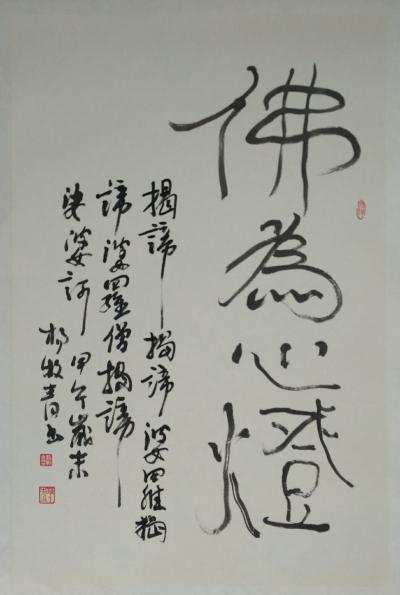 佛為心燈
揭諦揭諦婆羅揭
諦婆羅僧揭諦
娑婆訶 甲午歲末
楊牧青書